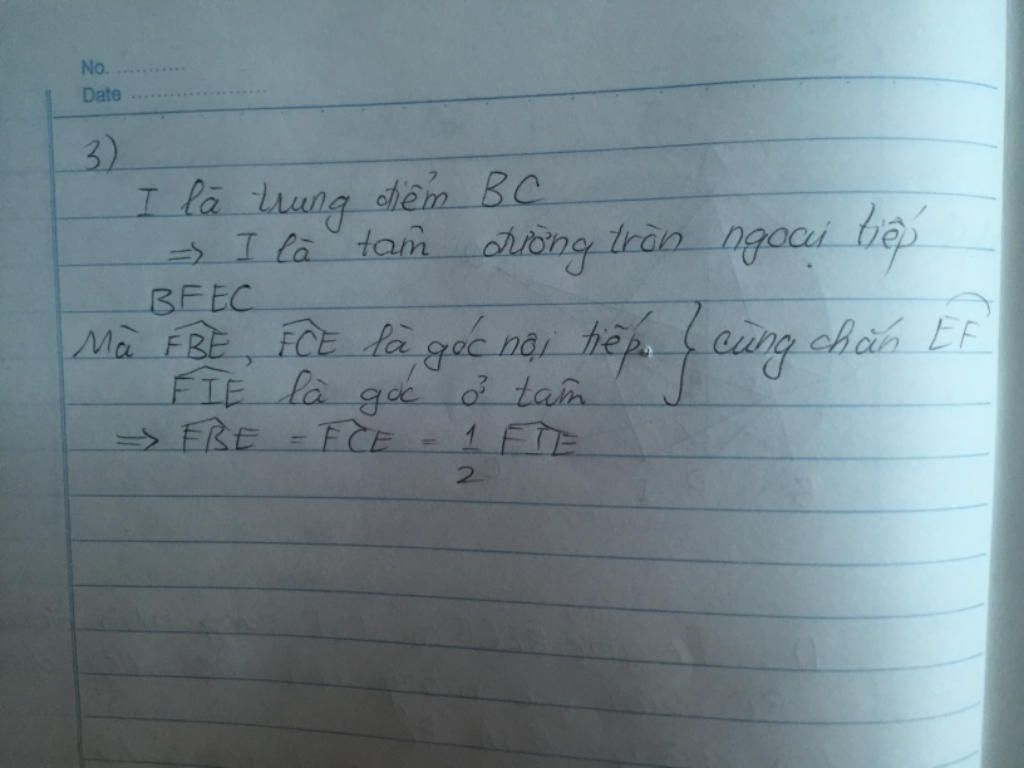 No. ...........
Date ......................
3)
I là trung điểm BC
⇒ I là tâm đường tròn ngoại tiếp
BFEC
Mà \widehat{FBE}, \widehat{FCE} là góc nội tiếp } cùng chắn \overset{\frown}{EF}
\widehat{FIE} là góc ở tâm
⇒ \widehat{FBE} = \widehat{FCE} = \frac{1}{2} \widehat{FIE}